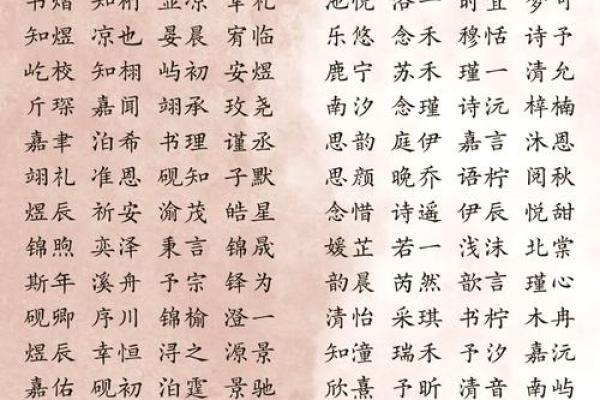 知煜 凉也 晏晨 宥临 乐悠 念禾 穆恬 诗予
屹校 知栩 屿初 安煜 鹿宁 苏禾 瑾一 清允
斤琛 嘉闻 翊承 玫尧 南汐 念瑾 诗沅 梓楠
嘉聿 泊希 书理 谨丞 思韵 庭伊 嘉言 沐恩
翊礼 准恩 砚知 子默 思颜 晚乔 语柠 阅秋
煜辰 祈安 渝茂 皓星 念惜 诗遥 伊辰 悦甜
锦煦 奕泽 秉言 锦晟 媛芷 若一 浅沫 北棠
斯年 溪舟 予宗 铎为 韵晨 芮然 歆言 瑾心
砚卿 序川 锦榆 澄一 清怡 采琪 书柠 木冉
煜辰 幸恒 浔之 源景 知潼 瑞禾 予汐 嘉沅
嘉佑 砚初 泊霆 景驰 欣熹 予昕 清音 南屿